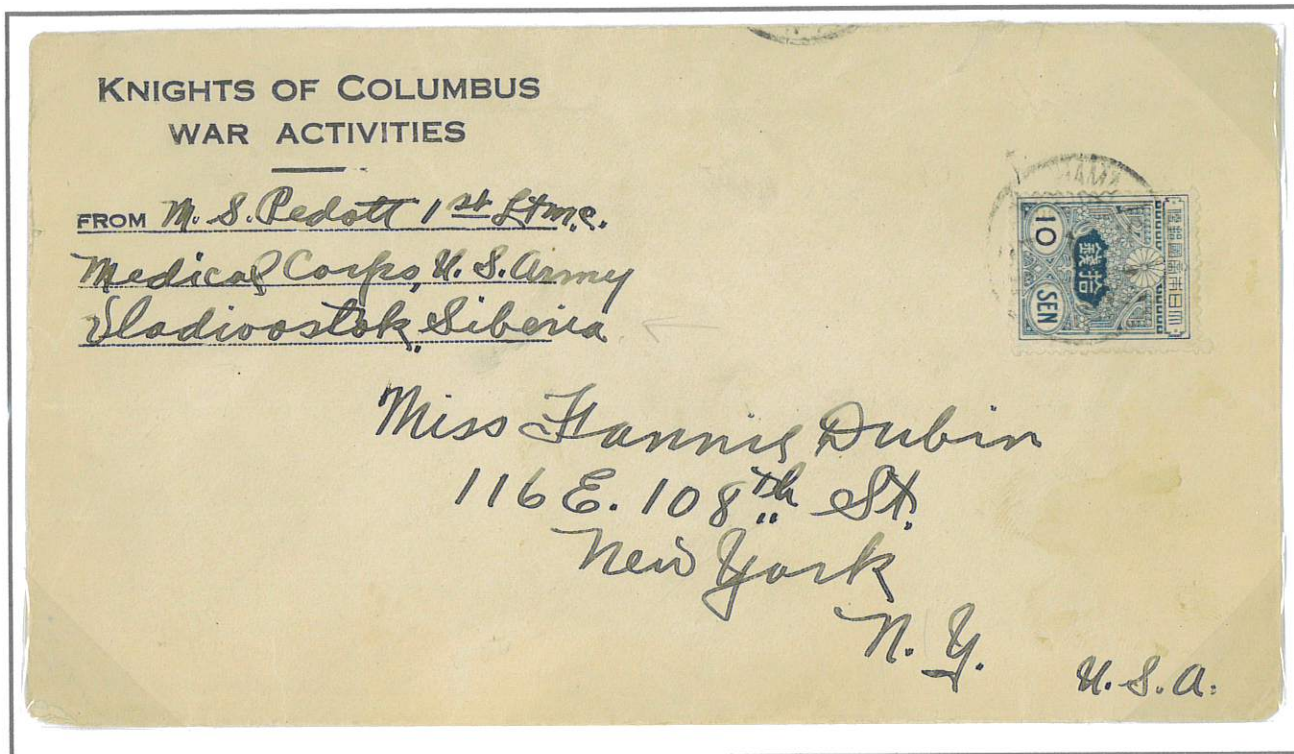 KNIGHTS OF COLUMBUS
WAR ACTIVITIES
FROM M. S. Pedott 1st Lt M.C.
Medical Corps, U. S. Army
Vladivostok, Siberia
大日本帝國郵便
拾錢
10 SEN
Miss Fannie Dubin
116 E. 108th St.
New York
N. Y.
U. S. A.